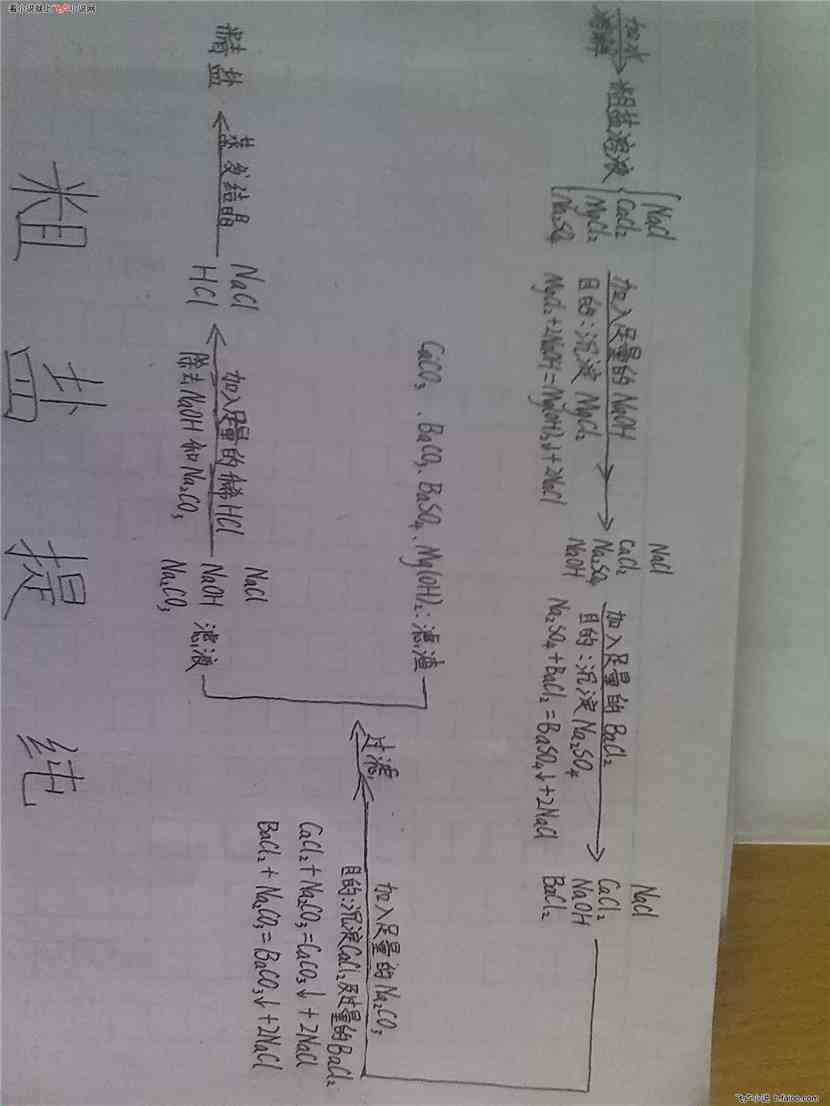 看小说就上飞卢小说网
加水
溶解
粗盐溶液
NaCl
CaCl₂
MgCl₂
Na₂SO₄
加入足量的 NaOH
目的:沉淀 MgCl₂
MgCl₂+2NaOH=Mg(OH)₂↓+2NaCl
NaCl
CaCl₂
Na₂SO₄
NaOH
加入足量的 BaCl₂
目的:沉淀 Na₂SO₄
Na₂SO₄+BaCl₂=BaSO₄↓+2NaCl
NaCl
CaCl₂
NaOH
BaCl₂
加入足量的 Na₂CO₃
目的:沉淀CaCl₂及过量的BaCl₂
CaCl₂+Na₂CO₃=CaCO₃↓+2NaCl
BaCl₂+Na₂CO₃=BaCO₃↓+2NaCl
过滤
CaCO₃、BaCO₃、BaSO₄、Mg(OH)₂:滤渣
NaCl
NaOH 滤液
Na₂CO₃
加入足量的稀HCl
除去NaOH和Na₂CO₃
NaCl
HCl
蒸发结晶
精盐
粗盐提纯
飞卢小说 b.faloo.com